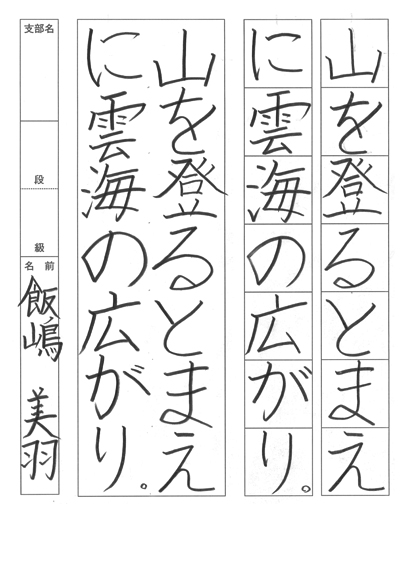 山を登るとまえ
に雲海の広がり。
山を登るとまえ
に雲海の広がり。
支部名
段
級
名前
飯嶋 美羽